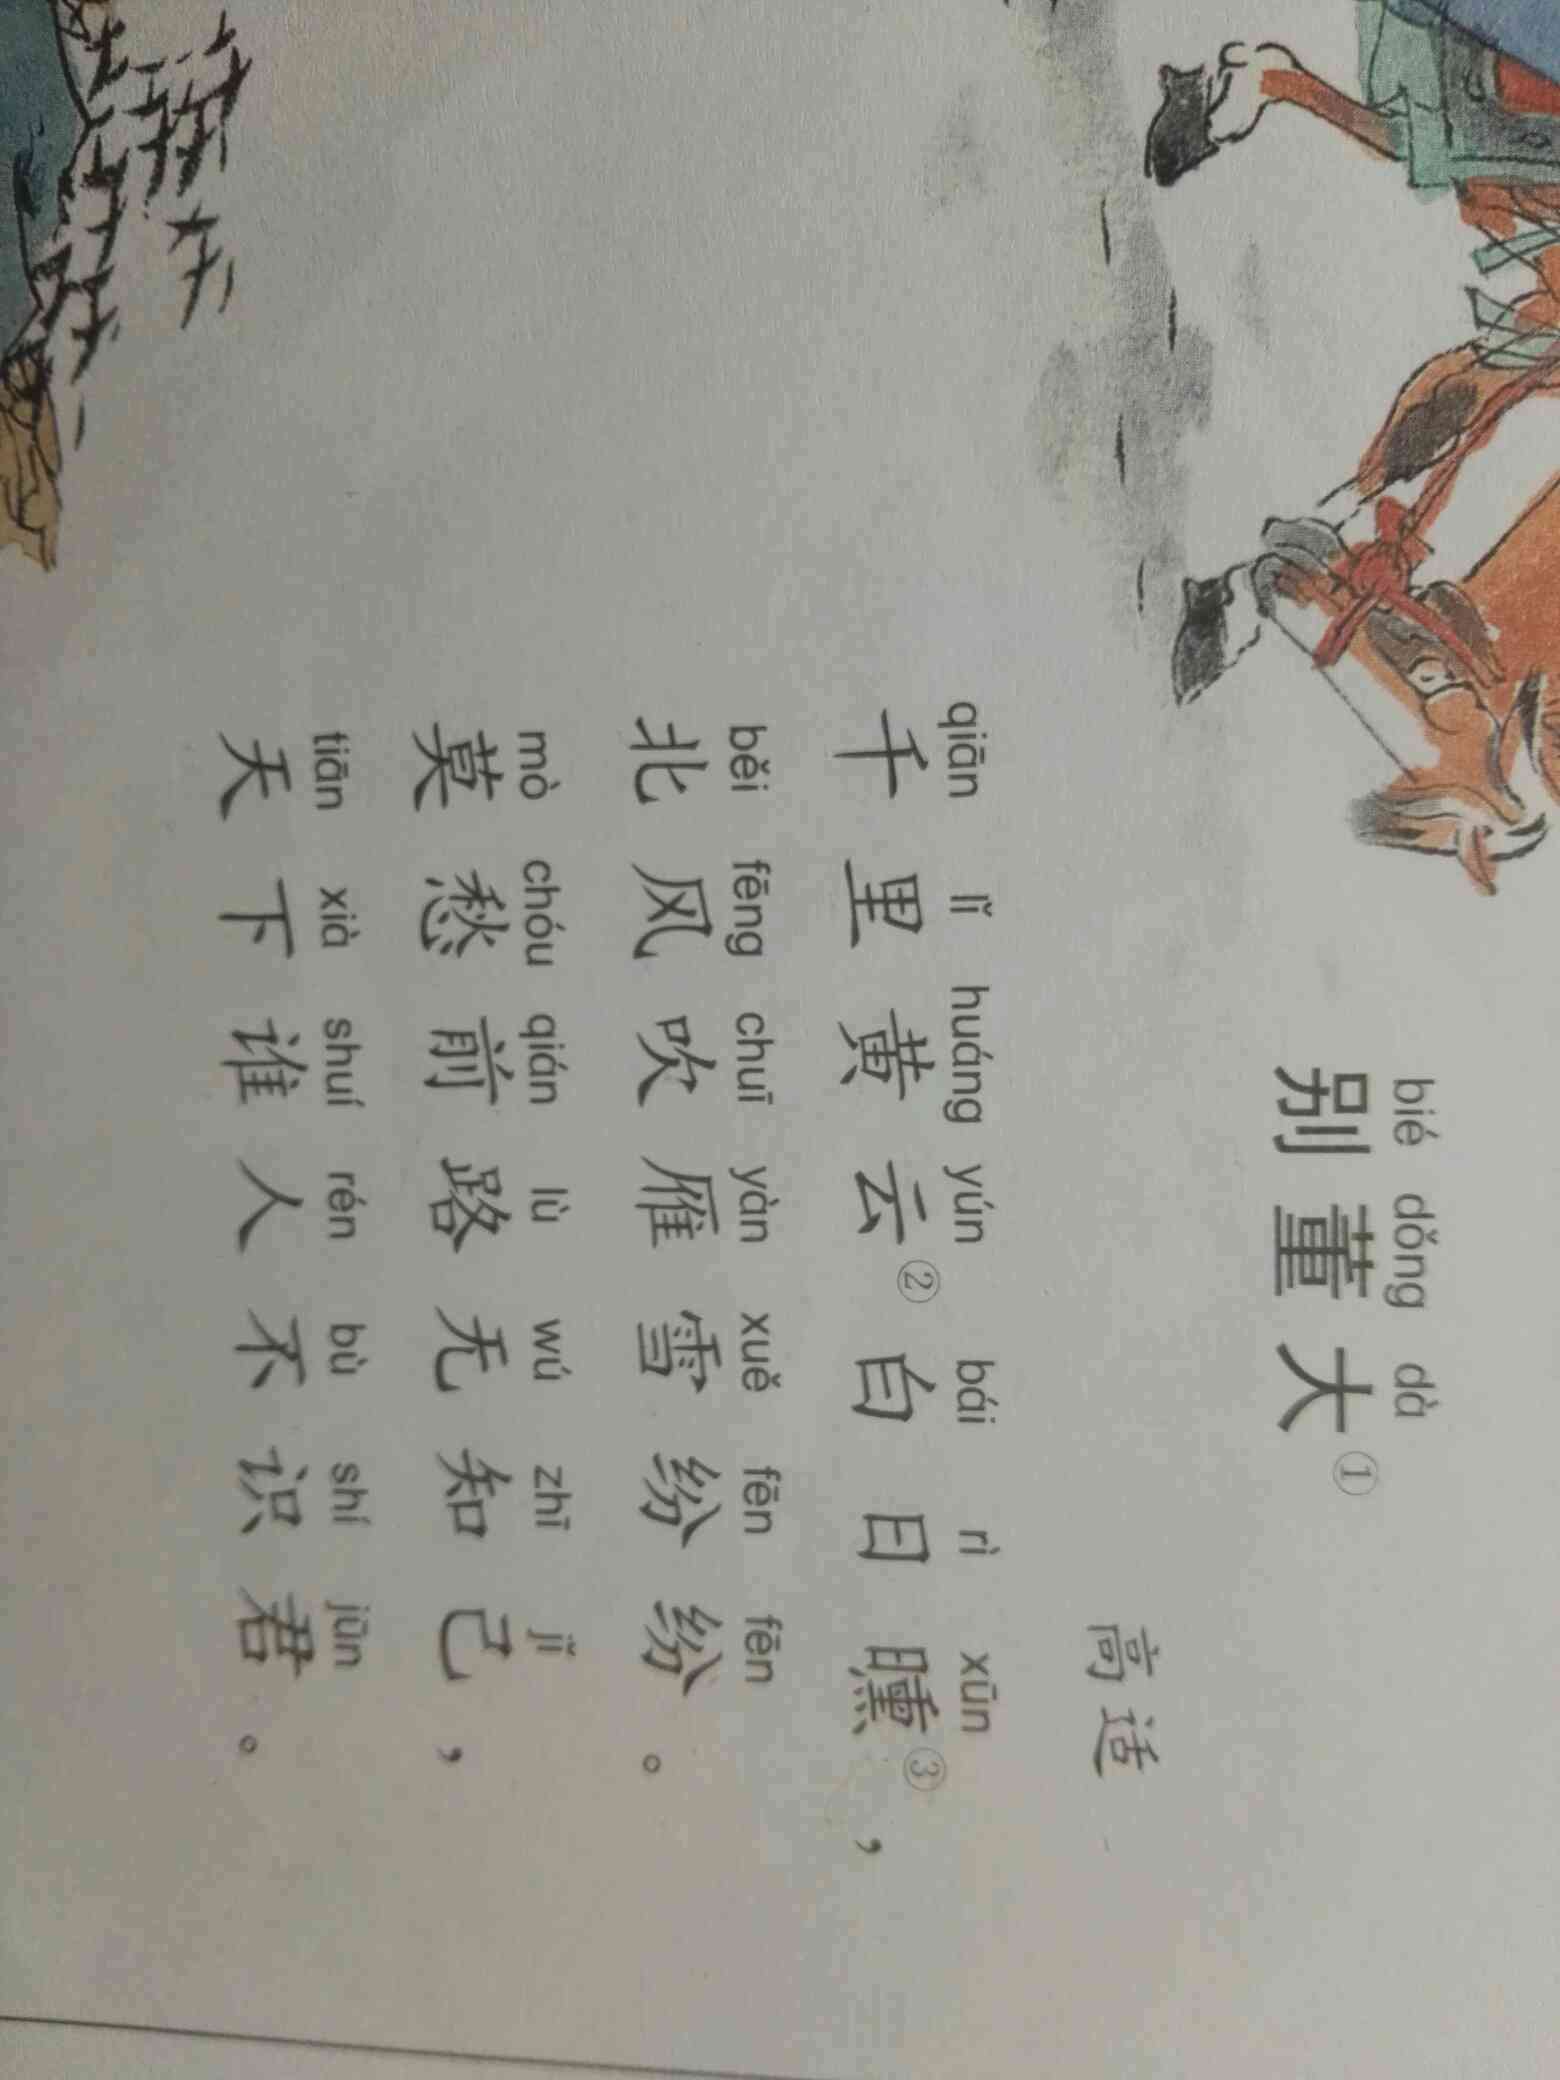 bié dǒng dà
别董大①
高适
qiān lǐ huáng yún bái rì xūn
千里黄云②白日曛③，
běi fēng chuī yàn xuě fēn fēn
北风吹雁雪纷纷。
mò chóu qián lù wú zhī jǐ
莫愁前路无知己，
tiān xià shuí rén bù shí jūn
天下谁人不识君。